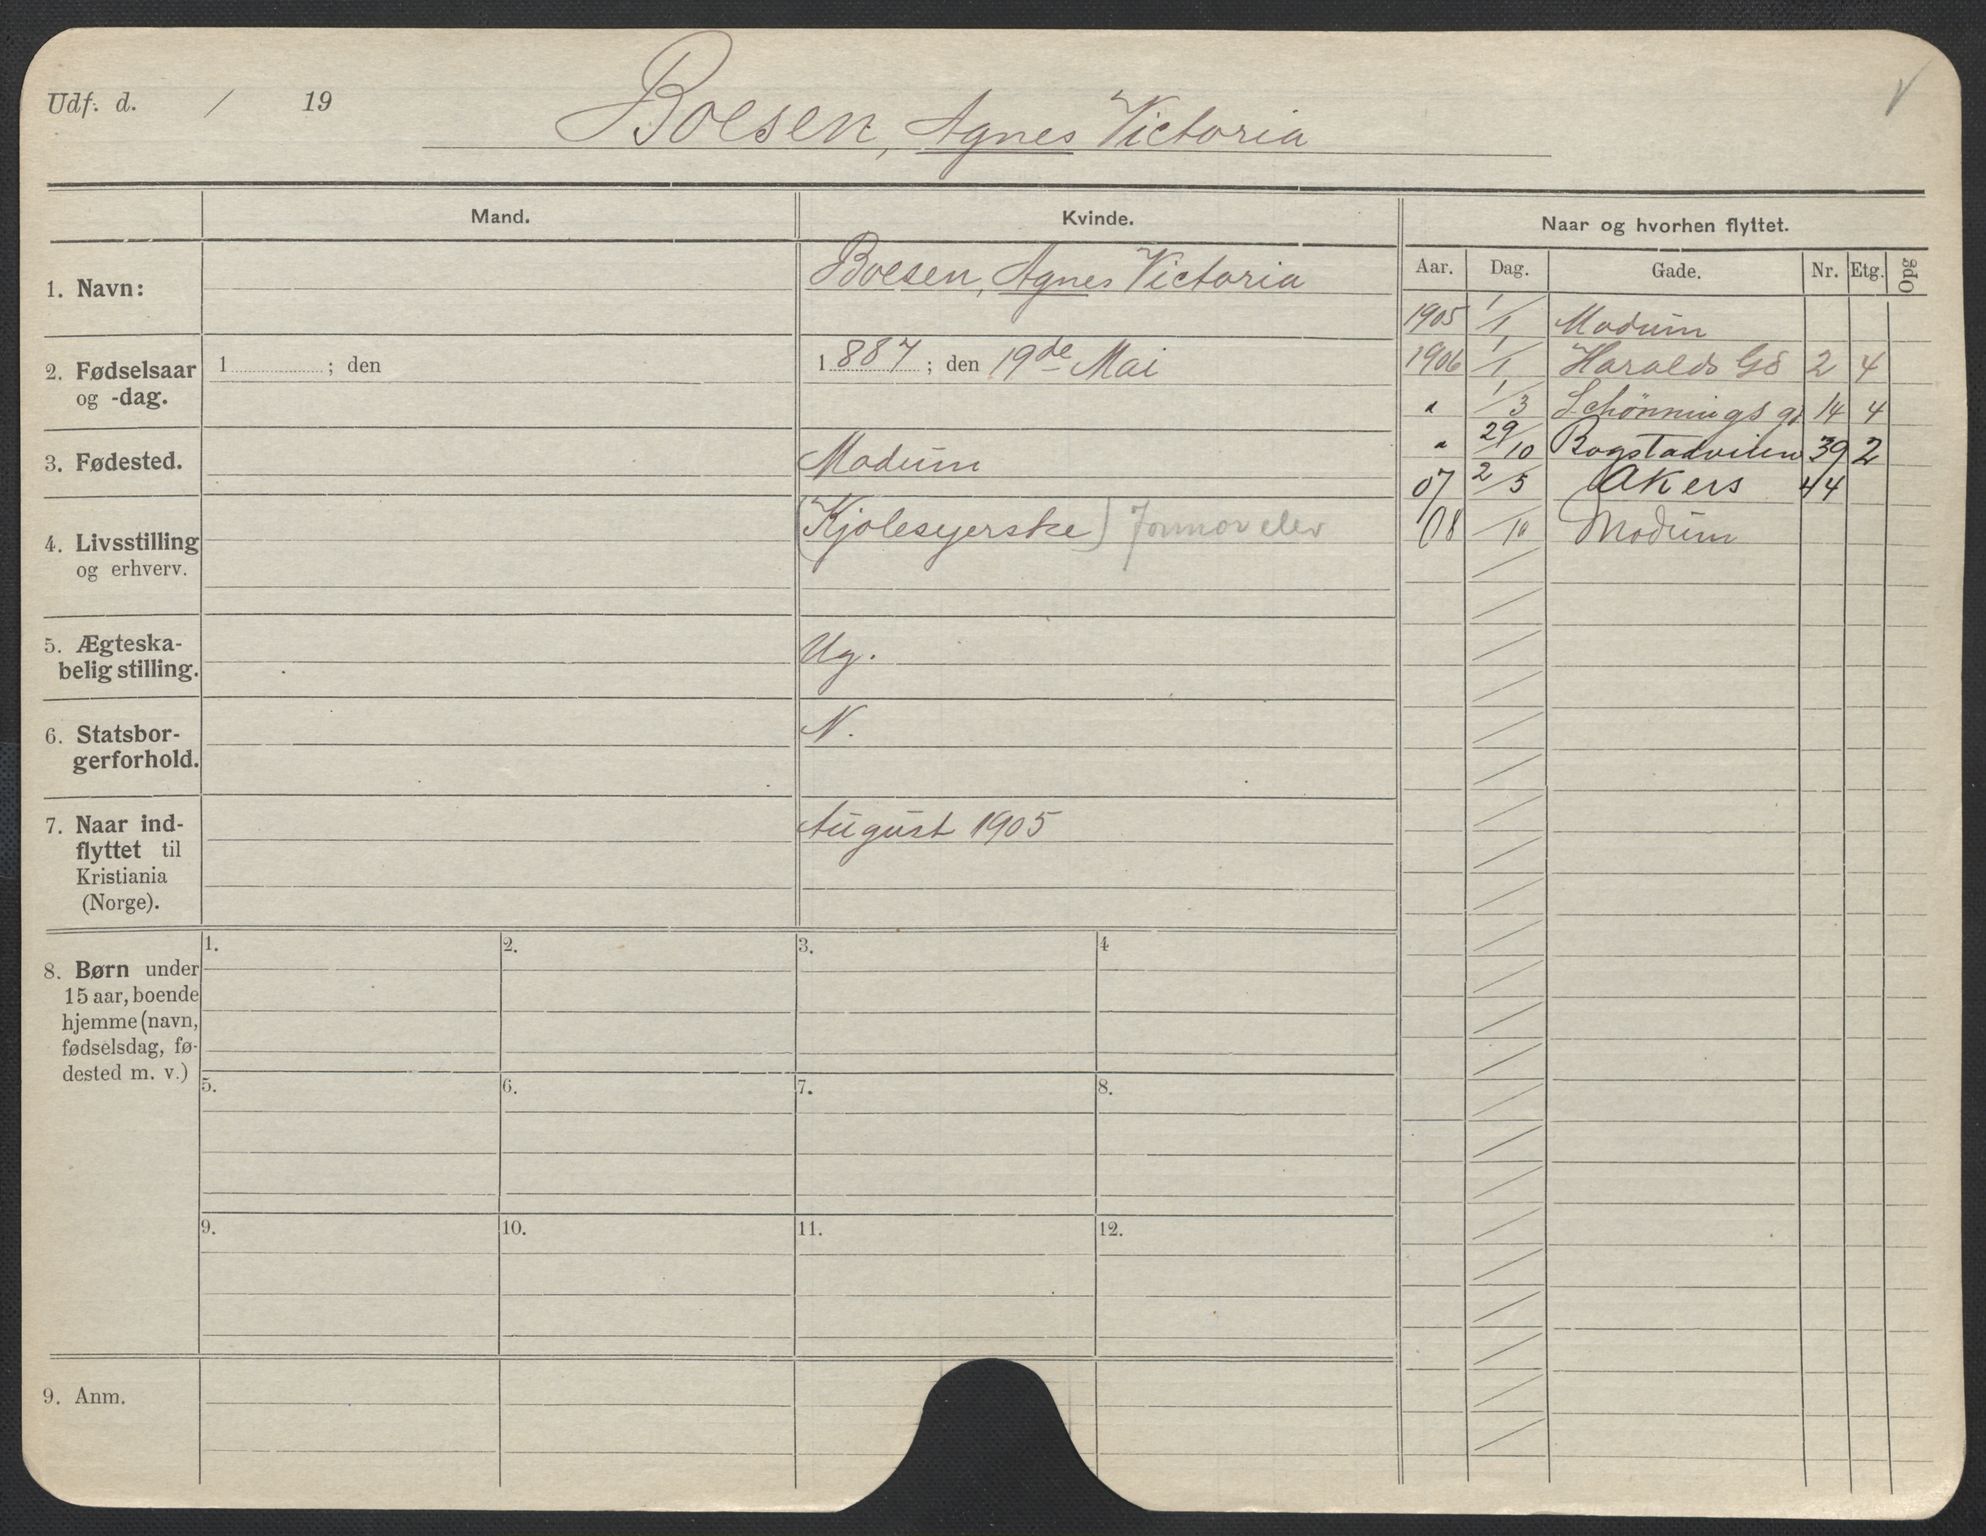 Udf. d. / 19
Boesen, Agnes Victoria
V
Mand.
Kvinde.
Naar og hvorhen flyttet.
Aar. Dag. Gade. Nr. Etg. Opg
1. Navn:
Boesen, Agnes Victoria
2. Fødselsaar
og -dag.
1 ; den
1887 ; den 19de Mai
3. Fødested.
Modum
4. Livsstilling
og erhverv.
(Kjolesyerske)
5. Ægteska-
belig stilling.
Ug.
6. Statsbor-
gerforhold.
N.
7. Naar ind-
flyttet til
Kristiania
(Norge).
August 1905
1905 1/1 Modum
1906 1/1 Haralds Gd 2 4
" 1/3 Schønnings gd 14 4
" 29/10 Bogstadveien 39 2
07 2/5 Akers 44
08 /10 Modum
8. Børn under
15 aar, boende
hjemme (navn,
fødselsdag, fø-
dested m. v.)
1. 2. 3. 4
5. 6. 7. 8.
9. 10. 11. 12.
9. Anm.